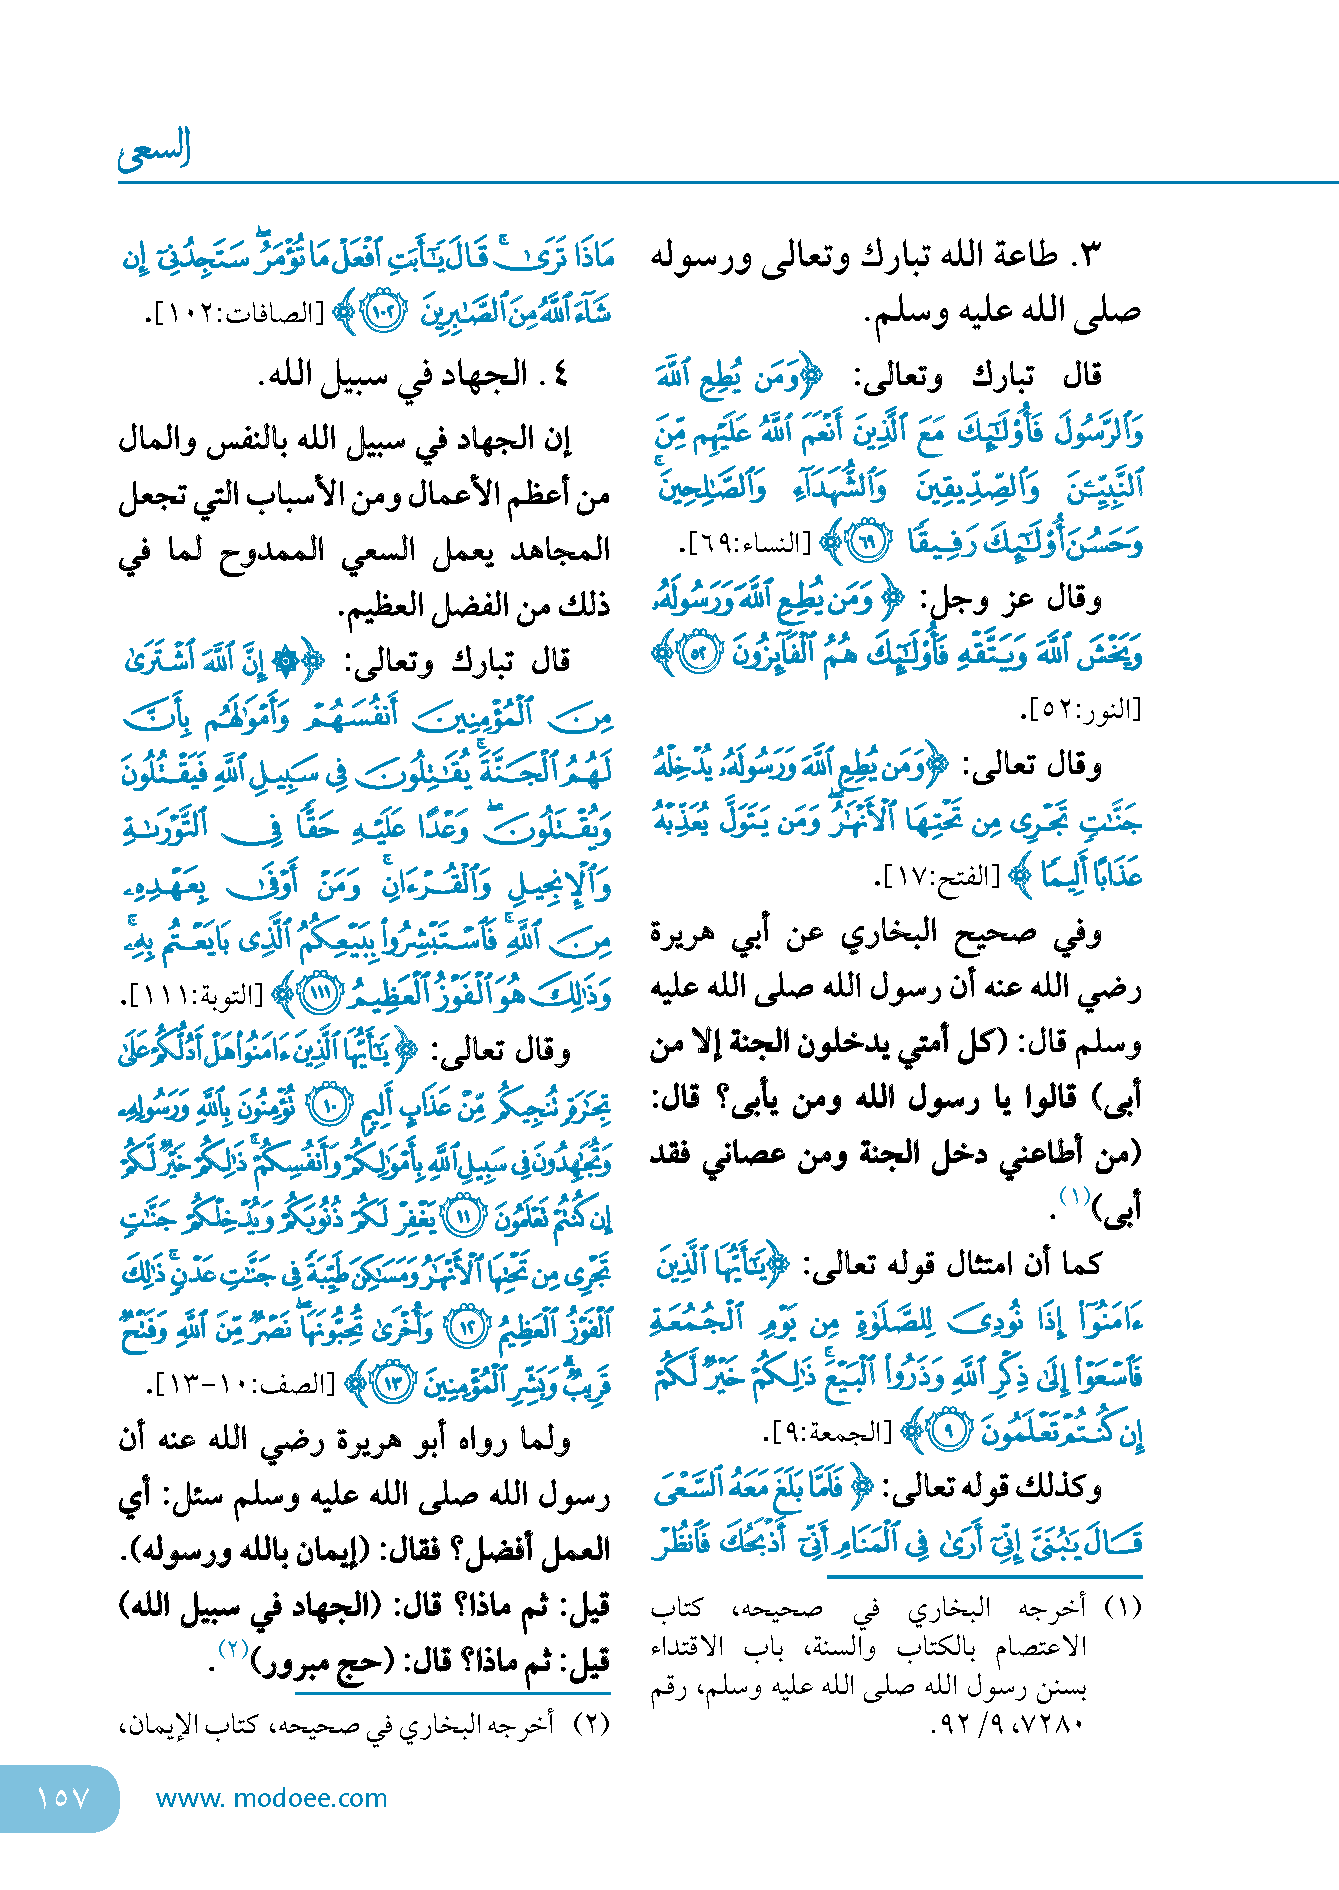 السعي
٣. طاعة الله تبارك وتعالى ورسوله
صلى الله عليه وسلم.
قال تبارك وتعالى: ﴿وَمَن يُطِعِ ٱللَّهَ
وَٱلرَّسُولَ فَأُو۟لَٰٓئِكَ مَعَ ٱلَّذِينَ أَنْعَمَ ٱللَّهُ عَلَيْهِم مِّنَ
ٱلنَّبِيِّـۧنَ وَٱلصِّدِّيقِينَ وَٱلشُّهَدَآءِ وَٱلصَّٰلِحِينَ ۚ
وَحَسُنَ أُو۟لَٰٓئِكَ رَفِيقًا ٦٩﴾ [النساء:٦٩].
وقال عز وجل: ﴿وَمَن يُطِعِ ٱللَّهَ وَرَسُولَهُۥ
وَيَخْشَ ٱللَّهَ وَيَتَّقْهِ فَأُو۟لَٰٓئِكَ هُمُ ٱلْفَآئِزُونَ ٥٢﴾
[النور:٥٢].
وقال تعالى: ﴿وَمَن يُطِعِ ٱللَّهَ وَرَسُولَهُۥ يُدْخِلْهُ
جَنَّٰتٍ تَجْرِى مِن تَحْتِهَا ٱلْأَنْهَٰرُ ۖ وَمَن يَتَوَلَّ يُعَذِّبْهُ
عَذَابًا أَلِيمًا﴾ [الفتح:١٧].
وفي صحيح البخاري عن أبي هريرة
رضي الله عنه أن رسول الله صلى الله عليه
وسلم قال: (كل أمتي يدخلون الجنة إلا من
أبى) قالوا يا رسول الله ومن يأبى؟ قال:
(من أطاعني دخل الجنة ومن عصاني فقد
أبى)(١).
كما أن امتثال قوله تعالى: ﴿يَٰٓأَيُّهَا ٱلَّذِينَ
ءَامَنُوٓا۟ إِذَا نُودِىَ لِلصَّلَوٰةِ مِن يَوْمِ ٱلْجُمُعَةِ
فَٱسْعَوْا۟ إِلَىٰ ذِكْرِ ٱللَّهِ وَذَرُوا۟ ٱلْبَيْعَ ۚ ذَٰلِكُمْ خَيْرٌ لَّكُمْ
إِن كُنتُمْ تَعْلَمُونَ ٩﴾ [الجمعة:٩].
وكذلك قوله تعالى: ﴿فَلَمَّا بَلَغَ مَعَهُ ٱلسَّعْىَ
قَالَ يَٰبُنَىَّ إِنِّىٓ أَرَىٰ فِى ٱلْمَنَامِ أَنِّىٓ أَذْبَحُكَ فَٱنظُرْ
(١) أخرجه البخاري في صحيحه، كتاب
الاعتصام بالكتاب والسنة، باب الاقتداء
بسنن رسول الله صلى الله عليه وسلم، رقم
٧٢٨٠، ٩/ ٩٢.
مَاذَا تَرَىٰ ۚ قَالَ يَٰٓأَبَتِ ٱفْعَلْ مَا تُؤْمَرُ ۖ سَتَجِدُنِىٓ إِن
شَآءَ ٱللَّهُ مِنَ ٱلصَّٰبِرِينَ ١٠٢﴾ [الصافات:١٠٢].
٤. الجهاد في سبيل الله.
إن الجهاد في سبيل الله بالنفس والمال
من أعظم الأعمال ومن الأسباب التي تجعل
المجاهد يعمل السعي الممدوح لما في
ذلك من الفضل العظيم.
قال تبارك وتعالى: ﴿۞ إِنَّ ٱللَّهَ ٱشْتَرَىٰ
مِنَ ٱلْمُؤْمِنِينَ أَنفُسَهُمْ وَأَمْوَٰلَهُم بِأَنَّ
لَهُمُ ٱلْجَنَّةَ ۚ يُقَٰتِلُونَ فِى سَبِيلِ ٱللَّهِ فَيَقْتُلُونَ
وَيُقْتَلُونَ ۖ وَعْدًا عَلَيْهِ حَقًّا فِى ٱلتَّوْرَىٰةِ
وَٱلْإِنجِيلِ وَٱلْقُرْءَانِ ۚ وَمَنْ أَوْفَىٰ بِعَهْدِهِۦ
مِنَ ٱللَّهِ ۚ فَٱسْتَبْشِرُوا۟ بِبَيْعِكُمُ ٱلَّذِى بَايَعْتُم بِهِۦ ۚ
وَذَٰلِكَ هُوَ ٱلْفَوْزُ ٱلْعَظِيمُ ١١١﴾ [التوبة:١١١].
وقال تعالى: ﴿يَٰٓأَيُّهَا ٱلَّذِينَ ءَامَنُوا۟ هَلْ أَدُلُّكُمْ عَلَىٰ
تِجَٰرَةٍ تُنجِيكُم مِّنْ عَذَابٍ أَلِيمٍ ١٠ تُؤْمِنُونَ بِٱللَّهِ وَرَسُولِهِۦ
وَتُجَٰهِدُونَ فِى سَبِيلِ ٱللَّهِ بِأَمْوَٰلِكُمْ وَأَنفُسِكُمْ ۚ ذَٰلِكُمْ خَيْرٌ لَّكُمْ
إِن كُنتُمْ تَعْلَمُونَ ١١ يَغْفِرْ لَكُمْ ذُنُوبَكُمْ وَيُدْخِلْكُمْ جَنَّٰتٍ
تَجْرِى مِن تَحْتِهَا ٱلْأَنْهَٰرُ وَمَسَٰكِنَ طَيِّبَةً فِى جَنَّٰتِ عَدْنٍ ۚ ذَٰلِكَ
ٱلْفَوْزُ ٱلْعَظِيمُ ١٢ وَأُخْرَىٰ تُحِبُّونَهَا ۖ نَصْرٌ مِّنَ ٱللَّهِ وَفَتْحٌ
قَرِيبٌ ۗ وَبَشِّرِ ٱلْمُؤْمِنِينَ ١٣﴾ [الصف:١٠-١٣].
ولما رواه أبو هريرة رضي الله عنه أن
رسول الله صلى الله عليه وسلم سئل: أي
العمل أفضل؟ فقال: (إيمان بالله ورسوله).
قيل: ثم ماذا؟ قال: (الجهاد في سبيل الله)
قيل: ثم ماذا؟ قال: (حج مبرور)(٢).
(٢) أخرجه البخاري في صحيحه، كتاب الإيمان،
١٥٧
www. modoee.com